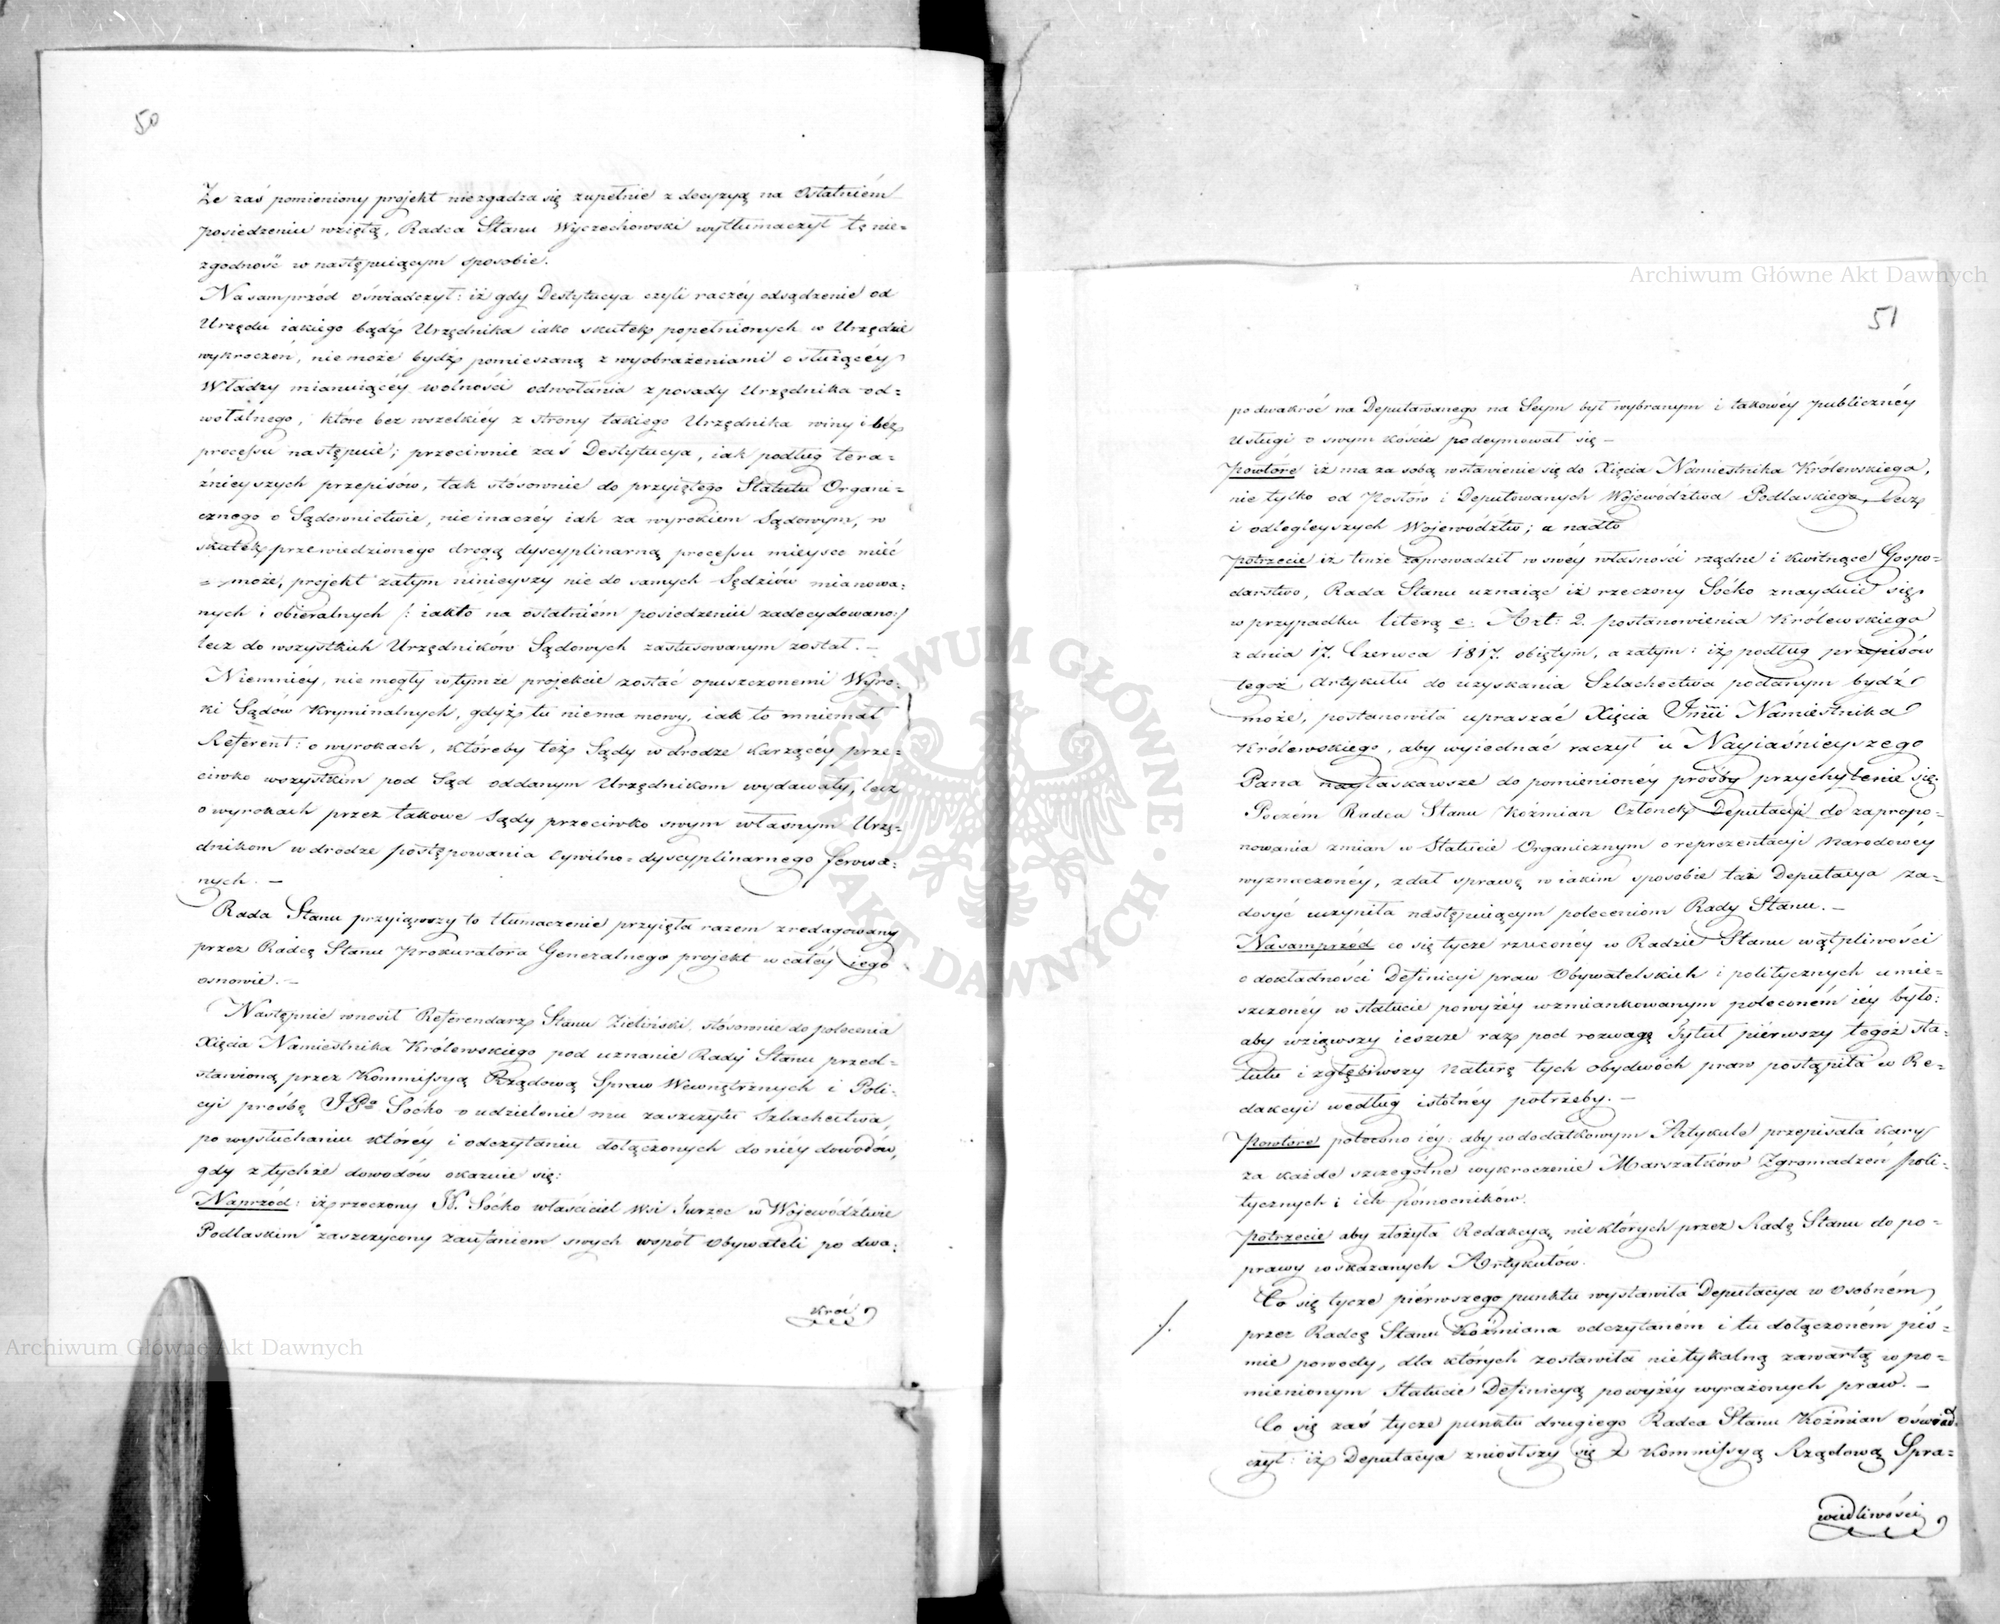 50
Że zaś pomieniony projekt niezgadza się zupełnie z decyzyą na ostatniém
posiedzeniu wziętą, Radca Stanu Wyczechowski wytłumaczył tę nie=
zgodność w następuiącym sposobie.
Nasamprzód oświadczył: iż gdy Destytucya czyli raczéy odsądzenie od
Urzędu iakiego bądź Urzędnika iako skutek popełnionych w Urzędzie
wykroczeń, nie może bydź pomieszaną z wyobrażeniami o służącéy
Władzy mianuiącéy wolności odwołania z posady Urzędnika od=
wołalnego, które bez wszelkiéy z strony takiego Urzędnika winy i bez
processu następuie; przeciwnie zaś Destytucya, iak podług tera=
źnieyszych przepisów, tak stósownie do przyiętego Statutu Organi=
cznego o Sądownictwie, nie inaczéy iak za wyrokiem Sądowym, w
skutek przewiedzionego drogą dyscyplinarną processu mieysce mieć
może, projekt zatym ninieyszy nie do samych Sędziów mianowa=
nych i obieralnych /: iak to na ostatniém posiedzeniu zadecydowano:/
lecz do wszystkich Urzędników Sądowych zastosowanym został. —
Niemniéy, nie mogły w tymże projekcie zostać opuszczonemi Wyro=
ki Sądów Kryminalnych, gdyż tu niema mowy, iak to mniemał
Referent: o wyrokach, któreby też Sądy w drodze karzącéy prze=
ciwko wszystkim pod Sąd oddanym Urzędnikom wydawały, lecz
o wyrokach przez takowe Sądy przeciwko swym własnym Urzę=
dnikom w drodze postępowania Cywilno=dyscyplinarnego ferowa=
nych. —
Rada Stanu przyiąwszy to tłumaczenie przyięła razem zredagowany
przez Radcę Stanu Prokuratora Generalnego projekt w całéy iego
osnowie. —
Następnie wnosił Referendarz Stanu Zieliński, stósownie do polecenia
Xięcia Namiestnika Królewskiego pod uznanie Rady Stanu przed=
stawioną przez Kommissyą Rządową Spraw Wewnętrznych i Poli=
cyi prośbę JPa Soćko o udzielenie mu zaszczytu Szlachectwa,
po wysłuchaniu któréy i odczytaniu dołączonych do niéy dowodów,
gdy z tychże dowodów okazuie się:
Naprzód: iż rzeczony Soćko właściciel Wsi Jurzec w Województwie
Podlaskim zaszczycony zaufaniem swych współ Obywateli po dwa=
kroć
51
podwakroć na Deputowanego na Seym był wybranym i takowéy publicznéy
Usługi o swym koście podeymował się —
Powtóre iż ma za sobą wstawienie się do Xięcia Namiestnika Królewskiego,
nie tylko od Posłów i Deputowanych Województwa Podlaskiego, lecz
i odległeyszych Województw; a nadto
Potrzecie iż tenże zaprowadził w swéy własności rządne i kwitnące Gospo=
darstwo, Rada Stanu uznaiąc iż rzeczony Soćko znayduie się
w przypadku literą e. Art: 2. postanowienia Królewskiego
z dnia 17. Czerwca 1817. obiętym, a zatym: iż podług przepisów
tegoż Artykułu do uzyskania Szlachectwa podanym bydź
może, postanowiła upraszać Xięcia Namiestnika
Królewskiego, aby wyiednać raczył u Nayiaśnieyszego
Pana nayłaskawsze do pomienionéy prośby przychylenie się.
Poczém Radca Stanu Koźmian Członek Deputacyi do zapropo=
nowania zmian w Statucie Organicznym o reprezentacyi Narodowéy
wyznaczonéy, zdał sprawę w iakim sposobie taż Deputacya za=
dosyć uczyniła następuiącym poleceniom Rady Stanu. —
Nasamprzód co się tycze rzuconéy w Radzie Stanu wątpliwości
o dokładności Definicyi praw Obywatelskich i politycznych umie=
szczonéy w statucie powyżéy wzmiankowanym poleconém iéy było:
aby wziąwszy ieszcze raz pod rozwagę Tytuł piérwszy tegoż sta=
tutu i zgłębiwszy naturę tych obydwóch praw postąpiła w Re=
dakcyi według istotnéy potrzeby. —
Powtóre polecono iéy: aby w dodatkowym Artykule przepisała kary
za każde szczególne wykroczenie Marszałków Zgromadzeń poli=
tycznych i ich pomocników.
Potrzecie aby złożyła Redakcyą niektórych przez Radę Stanu do po=
prawy wskazanych Artykułów.
Co się tycze piérwszego punktu wystawiła Deputacya w osobném
przez Radcę Stanu Koźmiana odczytaném i tu dołączoném piś=
mie powody, dla których zostawiła nietykalną zawartą w po=
mienionym Statucie Definicyą powyżéy wyrażonych praw. —
Co się zaś tycze punktu drugiego Radca Stanu Koźmian oświad=
czył: iż Deputacya zniosłszy się z Kommissyą Rządową Spra=
wiedliwości
Archiwum Główne Akt Dawnych
Archiwum Główne Akt Dawnych
ARCHIWUM GŁÓWNE · AKT DAWNYCH ·